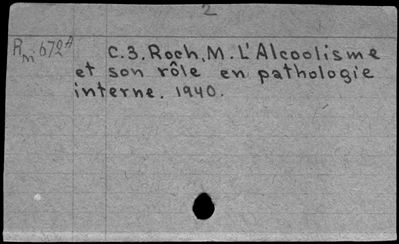 2
Rm. 672A C.3. Roch, M. L'Alcoolisme
et son rôle en pathologie
interne. 1940.